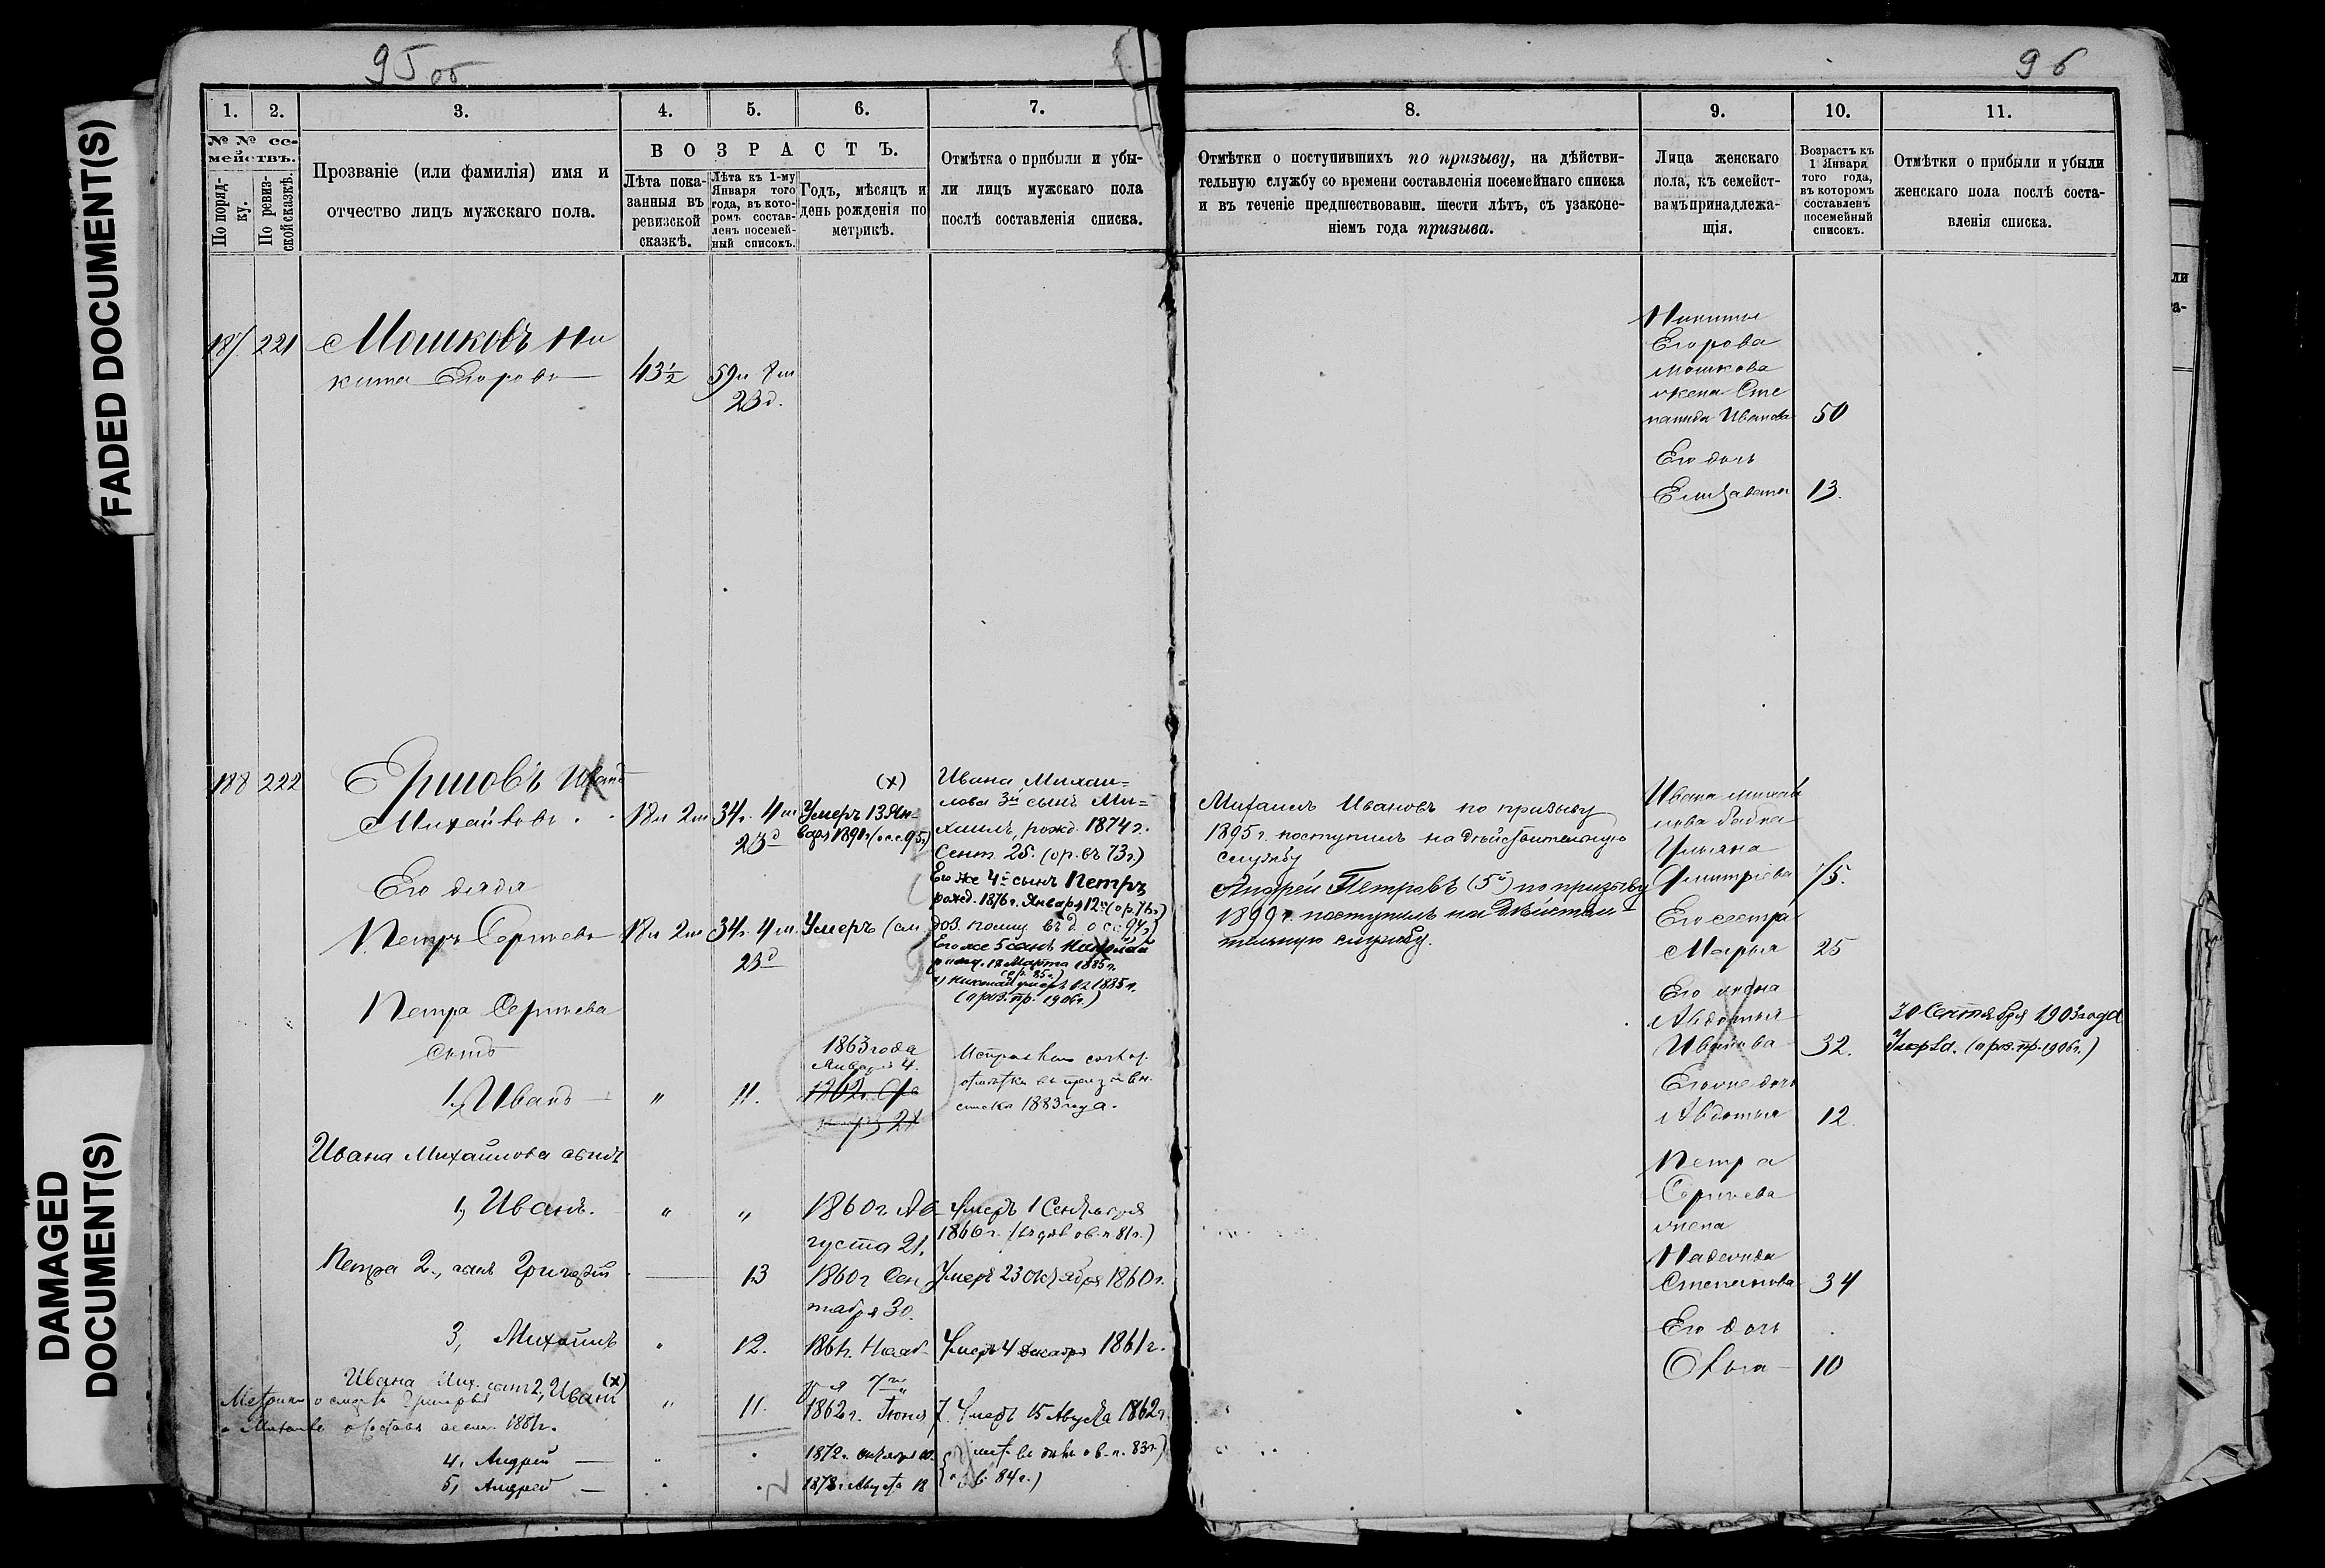 FADED DOCUMENT(S)
DAMAGED
DOCUMENT(S)
95 об
1. 2. 3. 4. 5. 6. 7.
№ № се-
мействъ.
По поряд-
ку.
По ревиз-
ской сказкѣ.
Прозваніе (или фамилія) имя и
отчество лицъ мужскаго пола.
В О З Р А С Т Ъ.
Лѣта пока-
занныя въ
ревизской
сказкѣ.
Лѣта къ 1-му
Января того
года, въ кото-
ромъ состав-
ленъ посемей-
ный списокъ.
Годъ, мѣсяцъ и
день рожденія по
метрикѣ.
Отмѣтка о прибыли и убы-
ли лицъ мужскаго пола
послѣ составленія списка.
187 221 Мошковъ Ни
кита Егоровъ 43½ 59л 8м
23д.
188 222 Ершовъ Иванъ
Михайловъ 18л 2м 34г. 4м
23д
(х)
Умеръ 13 Ян-
варя 1891г (о п.с. 95г)
Ивана Михаи=
лова 3й сынъ Ми=
хаилъ, рожд. 1874г.
Сент. 25. (ор. въ 73г.)
Его же 4й сынъ Петръ
рожд. 1876г. Января 12 (ор. 76г)
Его дядя
Петръ Сергѣевъ 18л 2м 34г. 4м.
23д
Умеръ (см.
Его же 5 сынъ Николай
рожд. 18 Марта 1885г.
(ор. 85г.)
Николай умеръ въ 1885г.
(о роз. пр. 1906г.)
Петра Сергѣева
сынъ
1, Иванъ " 11.
1863 года
Января 4.
1862г.
21
списка 1883 года.
Ивана Михайлова сынъ
1, Иванъ. " " 1860г Ав-
густа 21.
Умеръ 1 Сентября
1866г.
Петра 2, сынъ Григорій 13 1860г Сен
тября 30.
Умеръ 23 Октября 1860г.
3, Михаилъ " 12. 1861г. Нояб-
ря 7го
Умеръ 4 декабря 1861г.
Ивана Мих. сынъ 2, Иванъ (х) " 11. 1862г. Іюня 7. Умеръ 15 Августа 1862г.
Метрики о смерти Григорья
1881г.
4, Андрей — 1872г.
5, Андрей — 1878г. Августа 18
96
8. 9. 10. 11.
Отмѣтки о поступившихъ по призыву, на дѣйстви-
тельную службу со времени составленія посемейнаго списка
и въ теченіе предшествовавш. шести лѣтъ, съ узаконе-
ніемъ года призыва.
Лица женскаго
пола, къ семейст-
вамъ принадлежа-
щія.
Возрастъ къ
1 Января
того года,
въ которомъ
составленъ
посемейный
списокъ.
Отмѣтки о прибыли и убыли
женскаго пола послѣ соста-
вленія списка.
Никиты
Егорова
Мошкова
жена Сте
панида Иванова 50
Его дочь
Елизавета 13.
Михаилъ Ивановъ по призыву
1895г. поступилъ на дѣйствительную
службу
Андрей Петровъ (5й) по призыву
1899г. поступилъ на дѣйстви-
тельную службу.
Ивана Михай
лова бабка
Ульяна
Дмитріева 75.
Его сестра
Марья 25
Его жена
Авдотья
Иванова 32.
30 Сентября 1903 года
Умерла. (о роз. пр. 1906г.)
Его же дочь
Авдотья 12.
Петра
Сергѣева
жена
Надежда
Степанова 34
Его дочь
Ольга 10
ли
а-